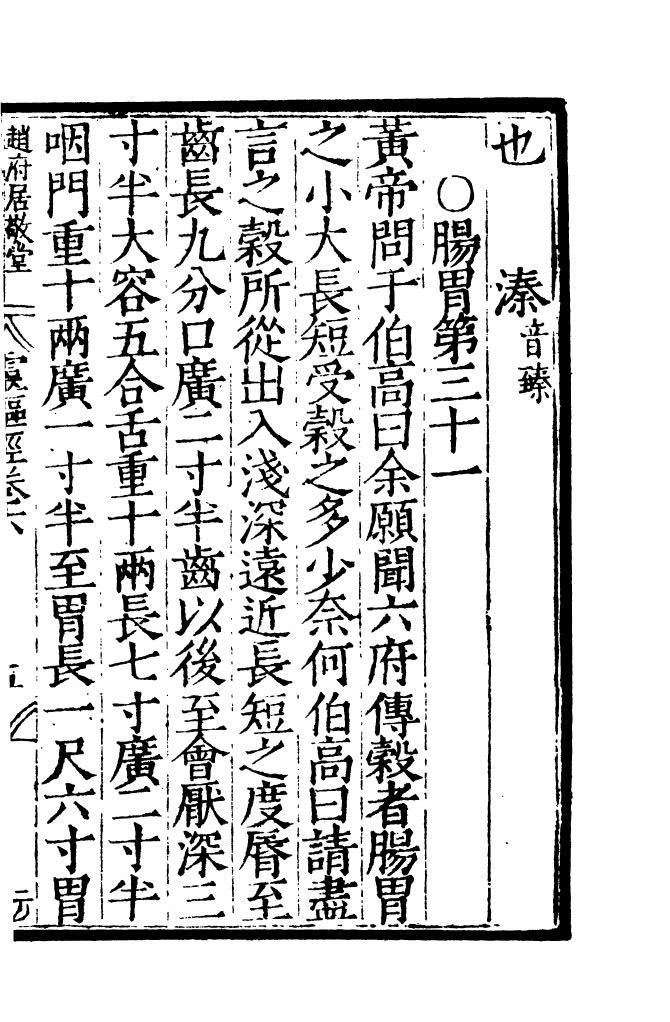 也　溱音臻
○腸胃第三十一
黃帝問于伯高曰余願聞六府傳穀者腸胃
之小大長短受穀之多少奈何伯高曰請盡
言之穀所從出入淺深遠近長短之度脣至
齒長九分口廣二寸半齒以後至會厭深三
寸半大容五合舌重十兩長七寸廣二寸半
咽門重十兩廣一寸半至胃長一尺六寸胃
趙府居敬堂　靈樞經卷六　五